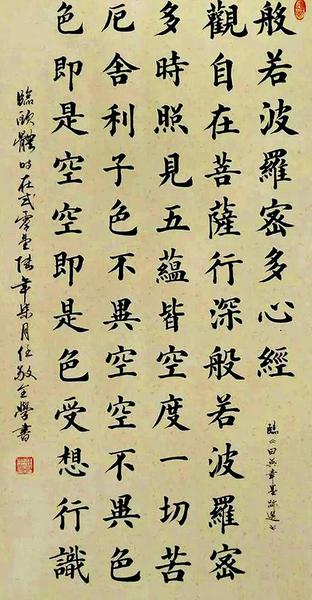 般若波羅密多心經
觀自在菩薩行深般若波羅密
多時照見五蘊皆空度一切苦
厄舍利子色不異空空不異色
色即是空空即是色受想行識
臨歐體時在弍零壹陸年柒月任敬全學書